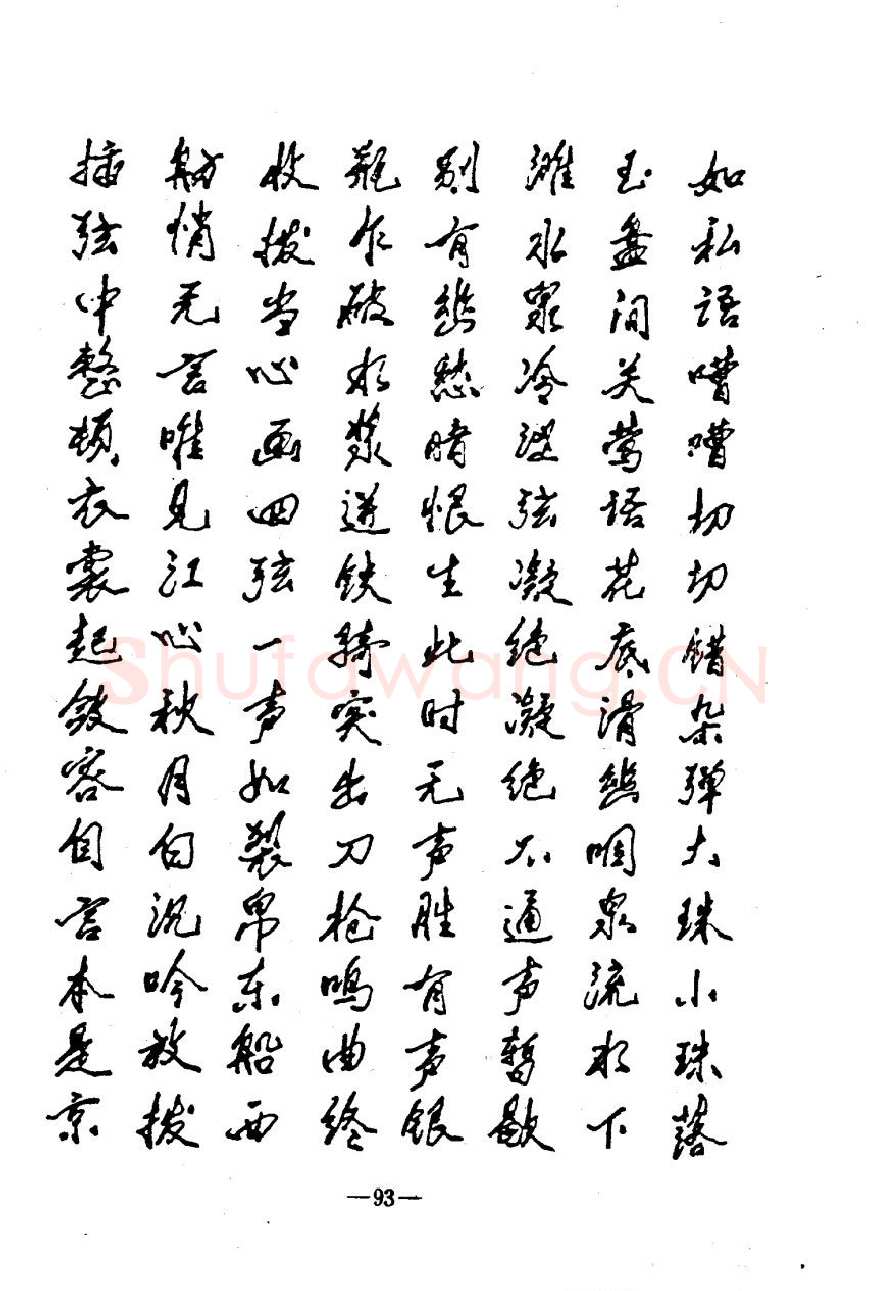 如私语嘈嘈切切错杂弹大珠小珠落
玉盘间关莺语花底滑幽咽泉流水下
滩水泉冷涩弦凝绝凝绝不通声暂歇
别有幽愁暗恨生此时无声胜有声银
瓶乍破水浆迸铁骑突出刀枪鸣曲终
收拨当心画四弦一声如裂帛东船西
舫悄无言唯见江心秋月白沉吟放拨
插弦中整顿衣裳起敛容自言本是京
—93—
Shufawang.CN